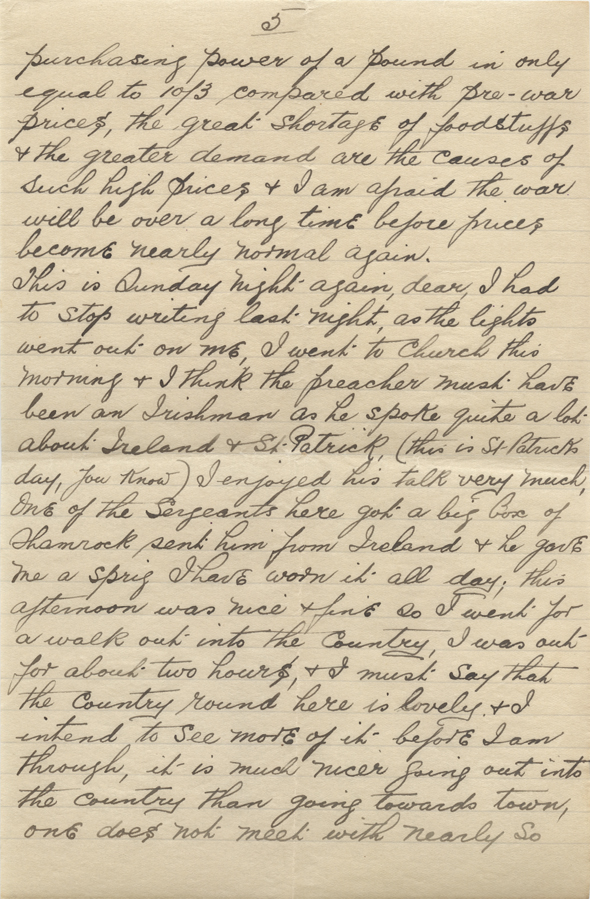 5
purchasing power of a pound in only
equal to 10/3 compared with pre-war
prices, the great shortage of foodstuffs
& the greater demand are the causes of
such high prices & I am afraid the war
will be over a long time before prices
become nearly normal again.
This is Sunday night again, dear, I had
to stop writing last night, as the lights
went out on me, I went to Church this
morning & I think the preacher must have
been an Irishman as he spoke quite a lot
about Ireland & St. Patrick, (this is St Patricks
day, you know) I enjoyed his talk very much,
One of the Sergeants here got a big box of
Shamrock sent him from Ireland & he gave
me a sprig I have worn it all day; this
afternoon was nice & fine so I went for
a walk out into the Country, I was out
for about two hours, & I must say that
the Country round here is lovely & I
intend to see more of it before I am
through, it is much nicer going out into
the country than going towards town,
one does not meet with nearly so